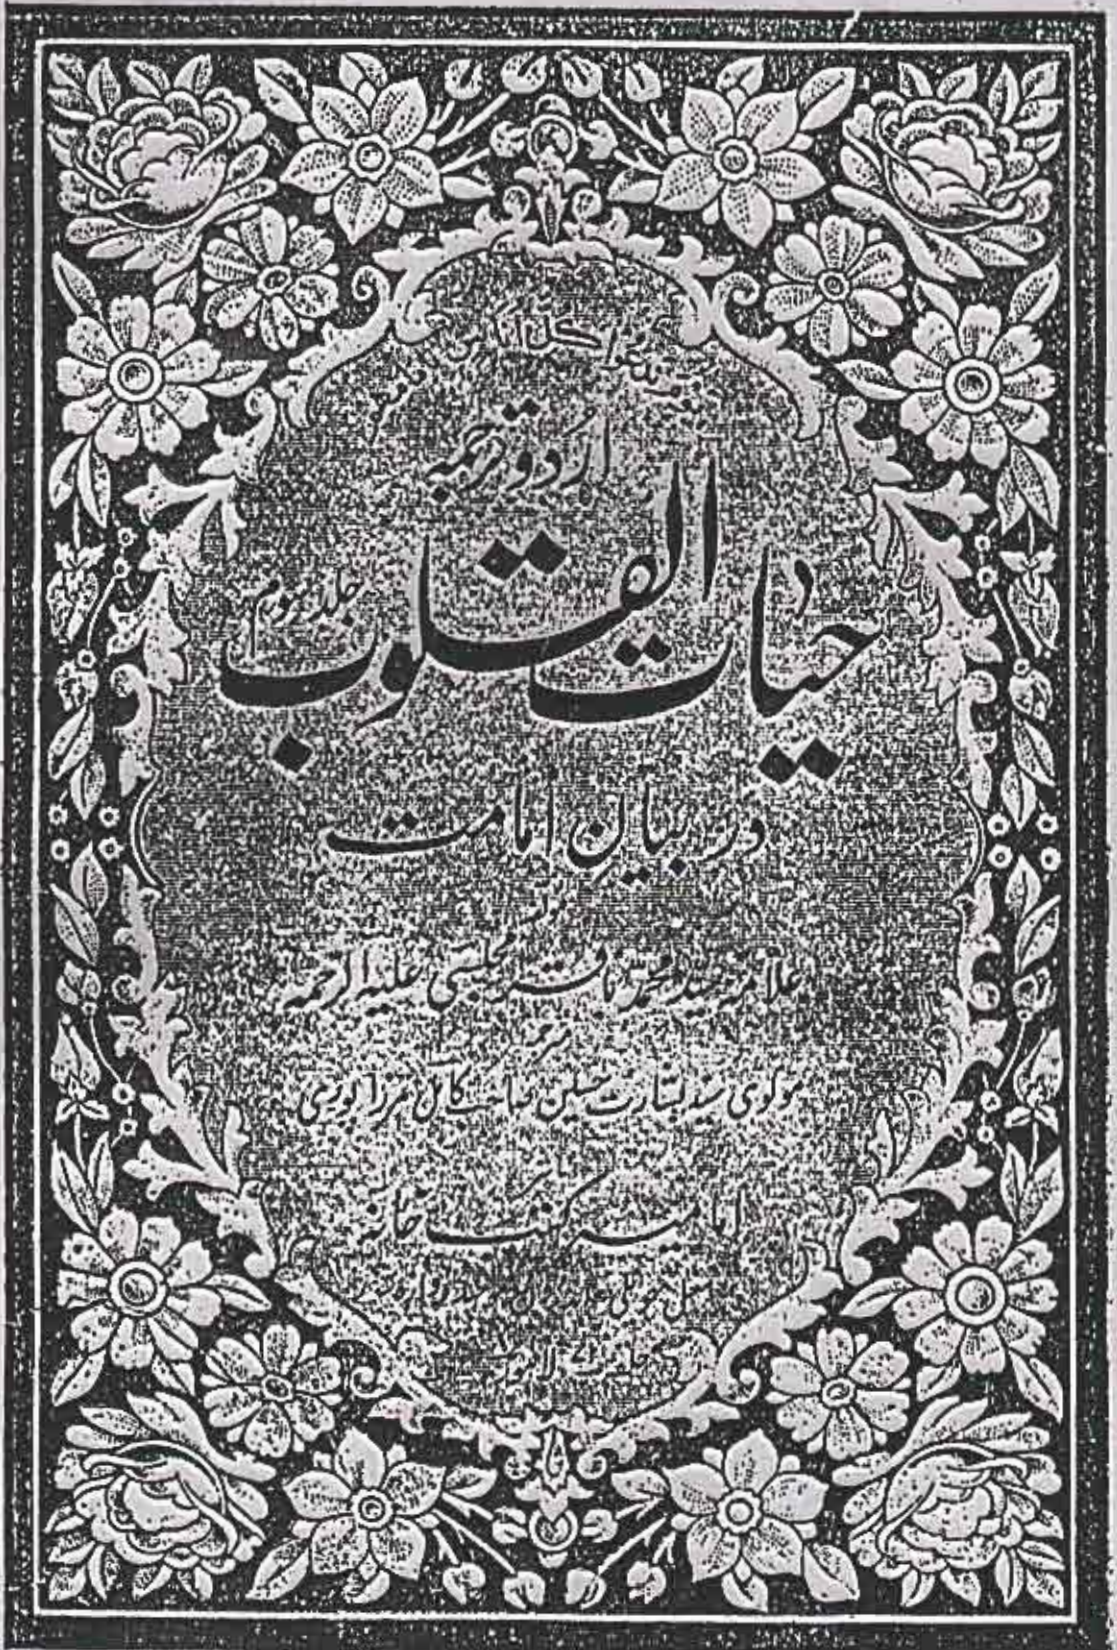 اُردو ترجمہ
حیات القلوب
جلد سوم
در بیان امامت
علامہ سید محمد باقر مجلسی علیہ الرحمہ
مترجم
مولوی سید بشارت حسین صاحب کامل مرزا پوری
ناشر
امامیہ کتب خانہ
لاہور